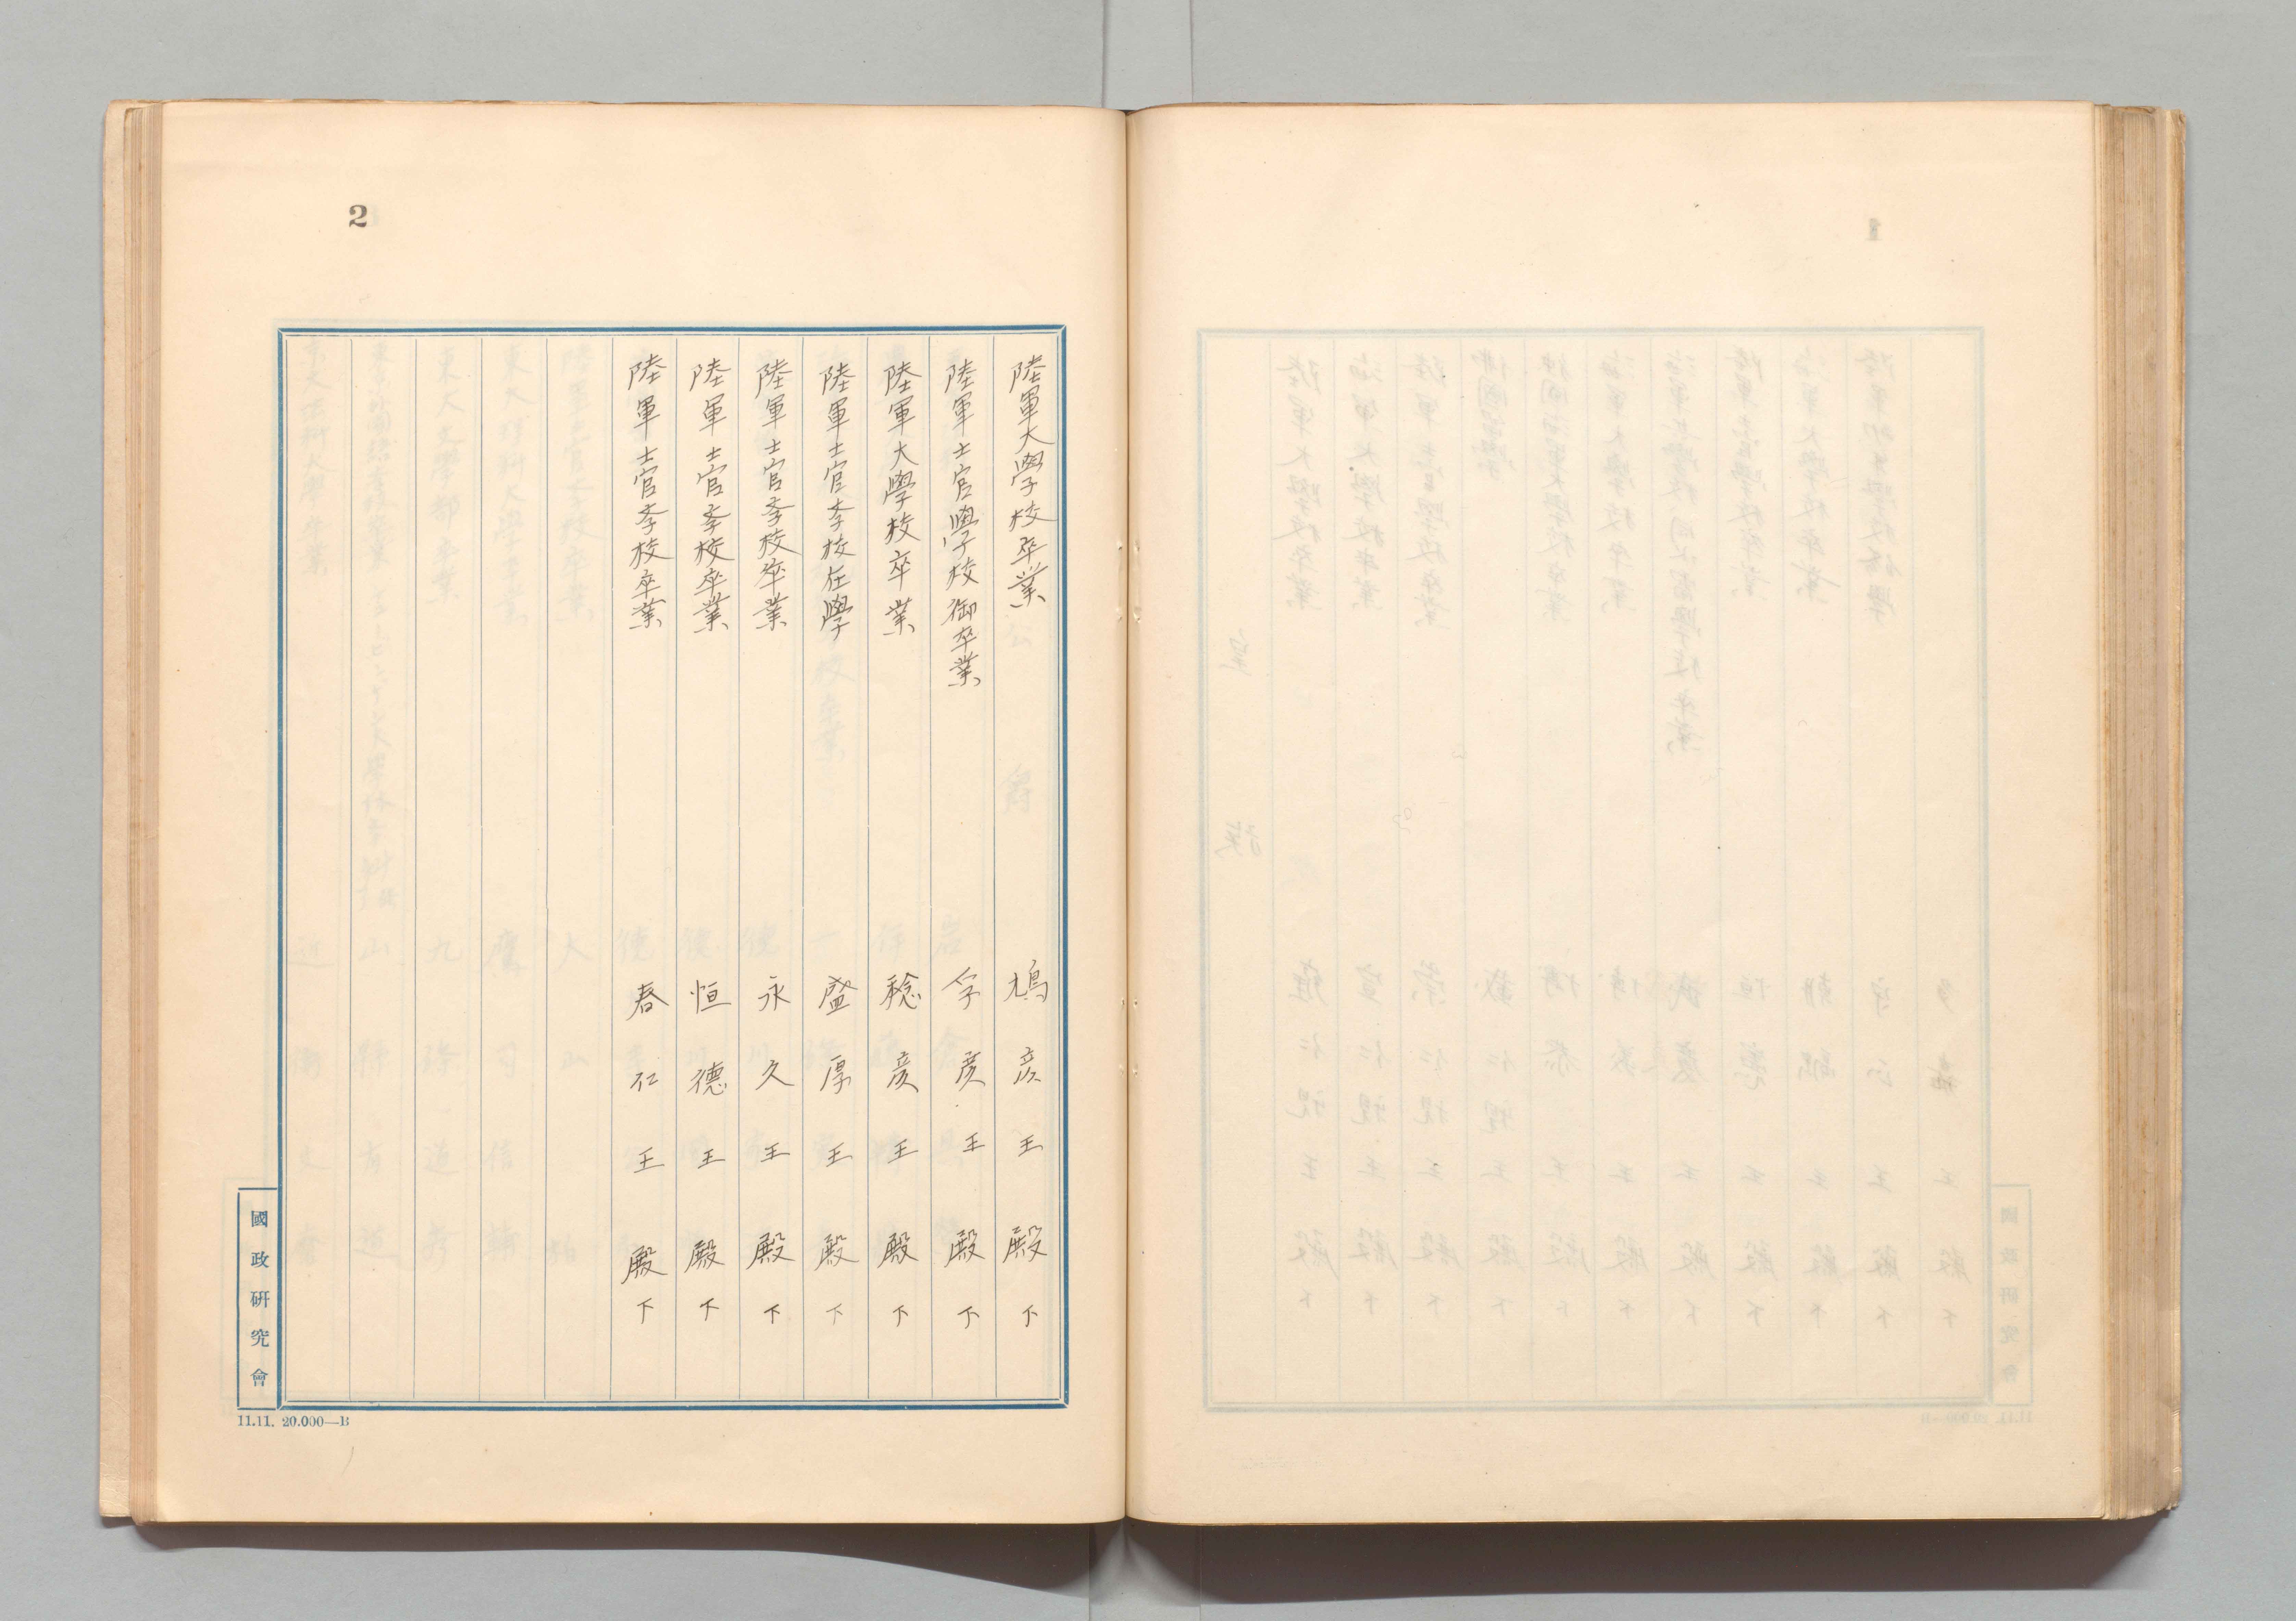 2
陸軍大學校卒業 鳩彦王殿下
陸軍士官學校御卒業 孚彦王殿下
陸軍大學校卒業 稔彦王殿下
陸軍士官孝校在學 盛厚王殿下
陸軍士官孝校卒業 永久王殿下
陸軍士官孝校卒業 恒德王殿下
陸軍士官孝校卒業 春仁王殿下
國政研究會
11.11. 20.000—B